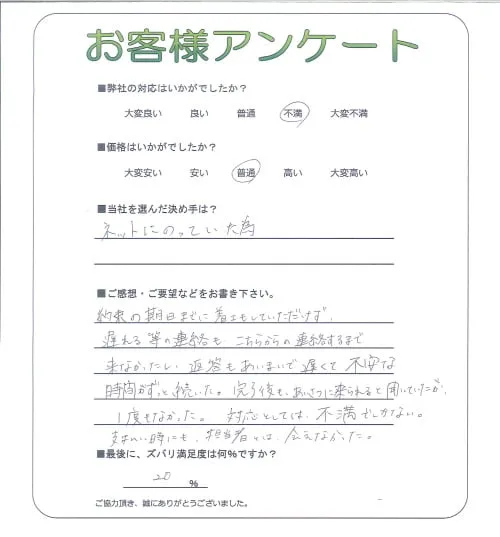 お客様アンケート
■弊社の対応はいかがでしたか？
大変良い　良い　普通　不満　大変不満
■価格はいかがでしたか？
大変安い　安い　普通　高い　大変高い
■当社を選んだ決め手は？
ネットにのっていた為
■ご感想・ご要望などをお書き下さい。
約束の期日までに着工もしていただけず、
遅れる等の連絡も、こちらからの連絡するまで
来なかったし、返答もあいまいで遅くて不安な
時間がずっと続いた。完了後も、あいさつに来られると聞いていたが、
1度もなかった。対応としては、不満でしかない。
支払い時にも、担当者とは、会えなかった。
■最後に、ズバリ満足度は何%ですか？
20 %
ご協力頂き、誠にありがとうございました。